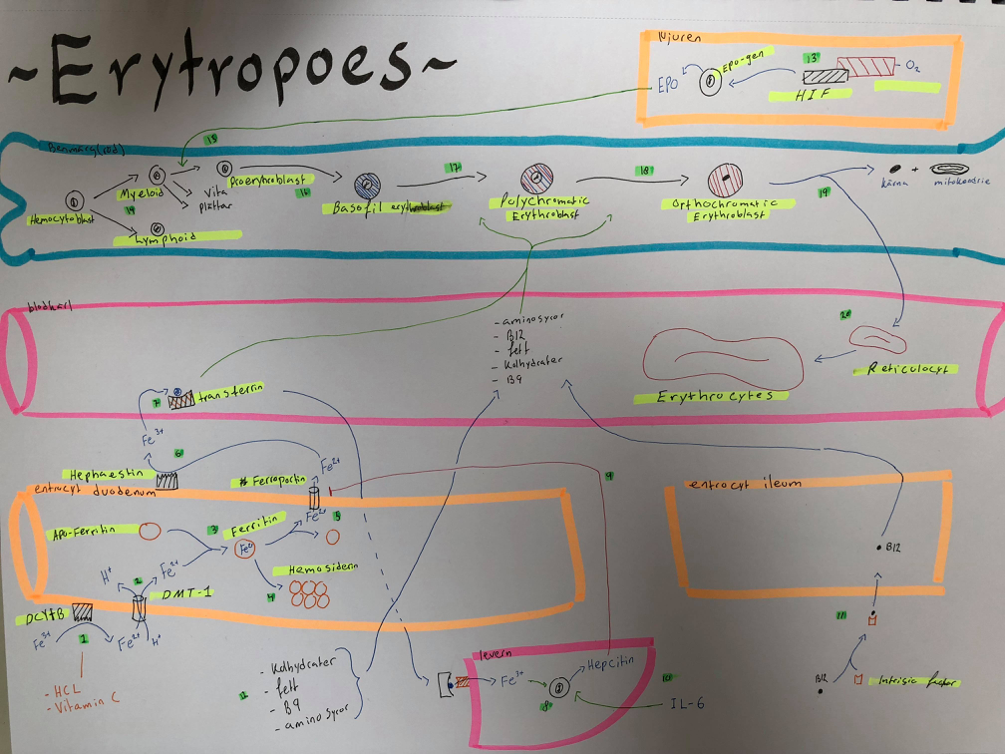 ~Erytropoes~
Njuren
EPO
Epo-gen
13
HIF
O₂
15
Benmärg (röd)
Hemocytoblast
Myeloid
14
Lymphoid
Vita
plättar
Proerythroblast
16
Basofil erythroblast
17
Polychromatic
Erythroblast
18
Orthochromatic
Erythroblast
19
kärna
+
mitokondrie
blodkärl
- aminosyror
- B12
- fett
- Kolhydrater
- B9
20
Reticulocyt
Erythrocytes
7
transferrin
Fe³⁺
6
Hephaestin
Fe²⁺
Ferroportin
9
entrocyt duodenum
entrocyt ileum
Apo-Ferritin
3
Ferritin
Fe²⁺
5
Fe
B12
H⁺
2
Fe²⁺
DMT-1
4
Hemosiderin
DCYtB
Fe³⁺
1
Fe²⁺
H⁺
- HCL
- Vitamin C
11
B12
Intrinsic factor
12
- Kolhydrater
- fett
- B9
- aminosyror
levern
Fe³⁺
Hepcitin
8
10
IL-6